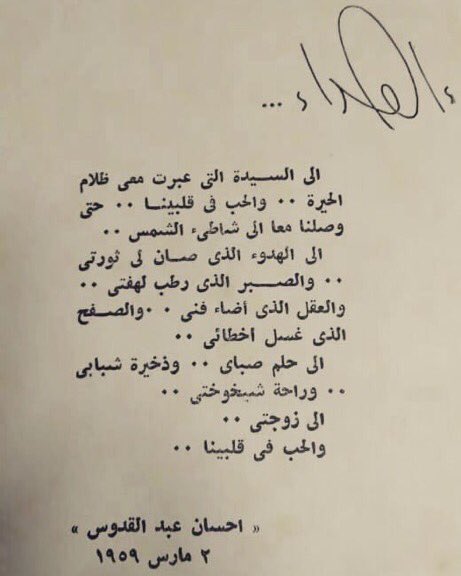 اهداء ...
الى السيدة التى عبرت معى ظلام
الحيرة ٠٠ والحب فى قلبينا ٠٠ حتى
وصلنا معا الى شاطىء الشمس ٠٠
الى الهدوء الذى صان لى ثورتى
٠٠ والصبر الذى رطب لهفتى ٠٠
والعقل الذى أضاء فنى ٠٠ والصفح
الذى غسل أخطائى ٠٠
الى حلم صباى ٠٠ وذخيرة شبابى
٠٠ وراحة شيخوختى ٠٠
الى زوجتى ٠٠
والحب فى قلبينا ٠٠
« احسان عبد القدوس »
٢ مارس ١٩٥٩